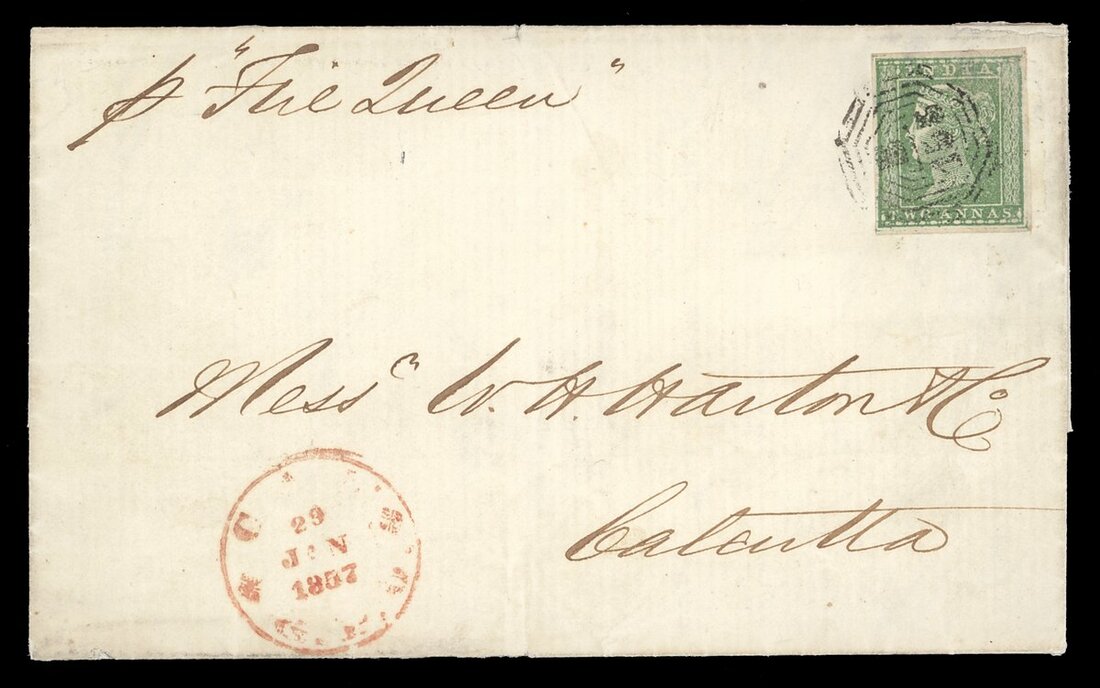 p "The Queen"
INDIA
TWO ANNAS
Messrs W. H. Harton & Co
Calcutta
29
JAN
1857